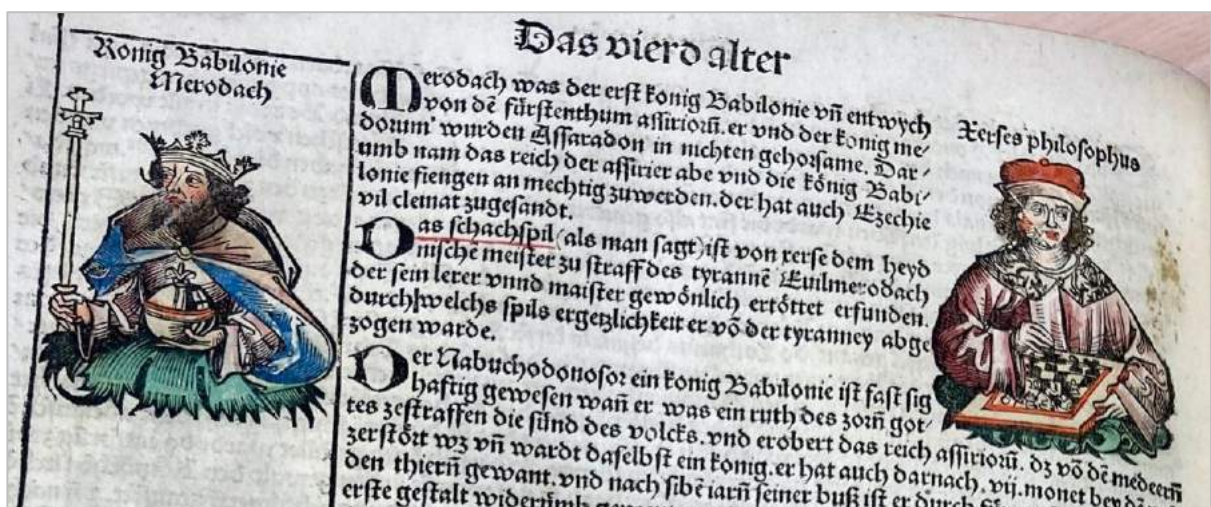 Das vierd alter
Konig Babilonie
Merodach
Merodach was der erst konig Babilonie vn̄ entwych
von dē fürstenthum assiriorū. er vnd der konig me⸗
dorum' wurden Assaradon in nichten gehorsame. Dar⸗
umb nam das reich der assirier abe vnd die kōnig Babi⸗
lonie fiengen an mechtig zuwerden. der hat auch Ezechie
vil clemat zugesandt.
Xerses philosophus
Das schachspil (als man sagt) ist von xerse dem heyd
nischē meister zu straff des tyrannē Euilmerodach
der sein lerer vnnd maister gewönlich ertöttet erfunden.
durch welchs spils ergetzlichkeit er vō der tyranney abge
zogen warde.
Der Nabuchodonosor ein konig Babilonie ist fast sig
haftig gewesen wañ er was ein ruth des zorñ got⸗
tes zestraffen die sünd des volcks. vnd erobert das reich assiriorū. dz vō dē medeern
zerstört wz vñ wardt daselbst ein konig. er hat auch darnach. vij. monet bey dē
den thierñ gewant. vnd nach sibē iarñ seiner buß ist er durch
erste gestalt